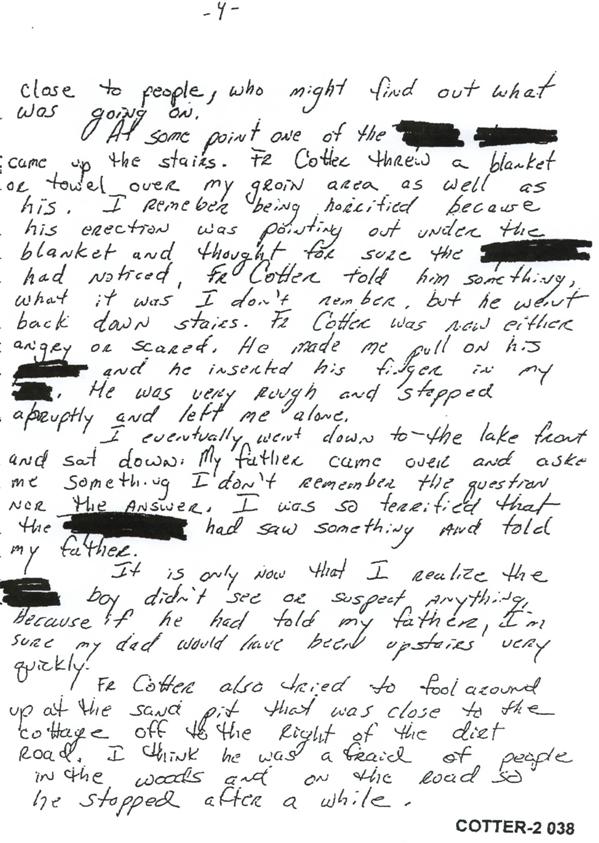 -4-
close to people, who might find out what
was going on.
At some point one of the
came up the stairs. FR Cotter threw a blanket
or towel over my groin area as well as
his. I remeber being horrified because
his erection was pointing out under the
blanket and thought for sure the
had noticed, FR Cotter told him something,
what it was I don't rember. but he went
back down stairs. FR Cotter was now either
angry or scared. He made me pull on his
and he inserted his finger in my
. He was very rough and stopped
abruptly and left me alone.
I eventually went down to the lake front
and sat down. My father came over and aske
me something I don't remember the question
NOR the ANSWER. I was so terrified that
the had saw something AND told
my father.
It is only now that I realize the
boy didn't see or suspect anything,
because if he had told my father, I'm
sure my dad would have been upstairs very
quickly.
FR Cotter also tried to fool around
up at the sand pit that was close to the
cottage off to the right of the dirt
road. I think he was a fraid of people
in the woods and on the road so
he stopped after a while.
COTTER-2 038